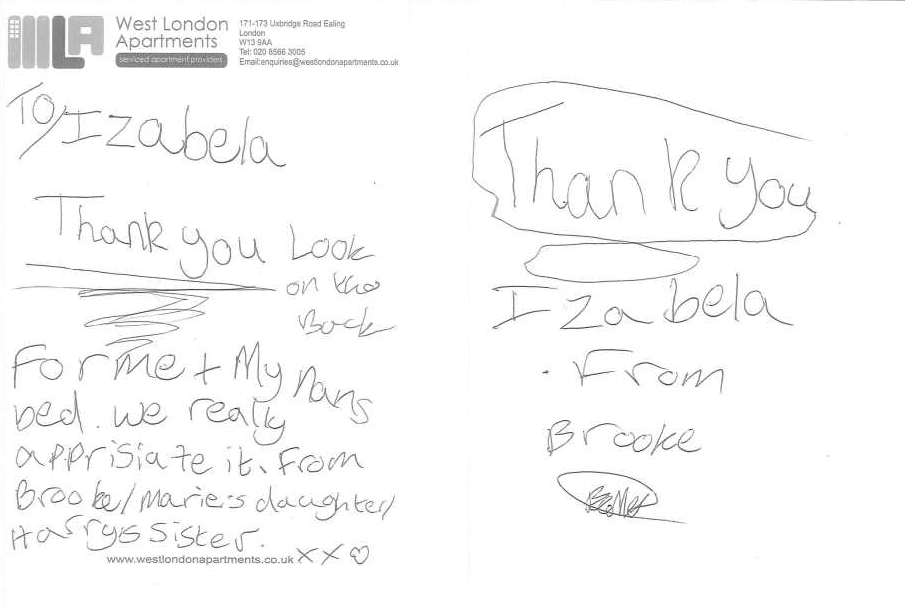 West London
Apartments
serviced apartment providers
171-173 Uxbridge Road Ealing
London
W13 9AA
Tel: 020 8566 3005
Email:enquiries@westlondonapartments.co.uk
To/Izabela
Thank you Look
on the
Back
For me + My nans
bed. we really
apprisiate it. From
Brooke/Marie's daughter/
Harrys Sister.
www.westlondonapartments.co.uk x x ♡
Thank you
Izabela
. From
Brooke